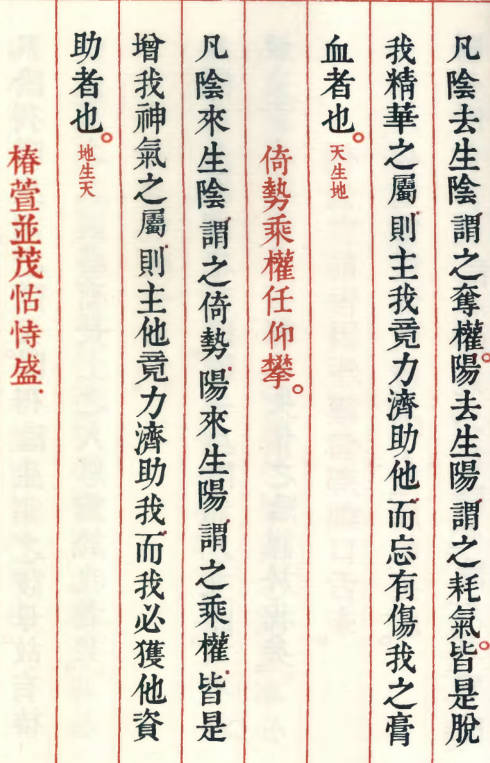 凡陰去生陰謂之奪權。陽去生陽謂之耗氣。皆是脫
我精華之屬則主我竟力濟助他而忘有傷我之膏
血者也。天生地
倚勢乘權任仰攀。
凡陰來生陰謂之倚勢陽來生陽謂之乘權皆是
增我神氣之屬則主他竟力濟助我而我必獲他資
助者也。地生天
椿萱並茂怙恃盛